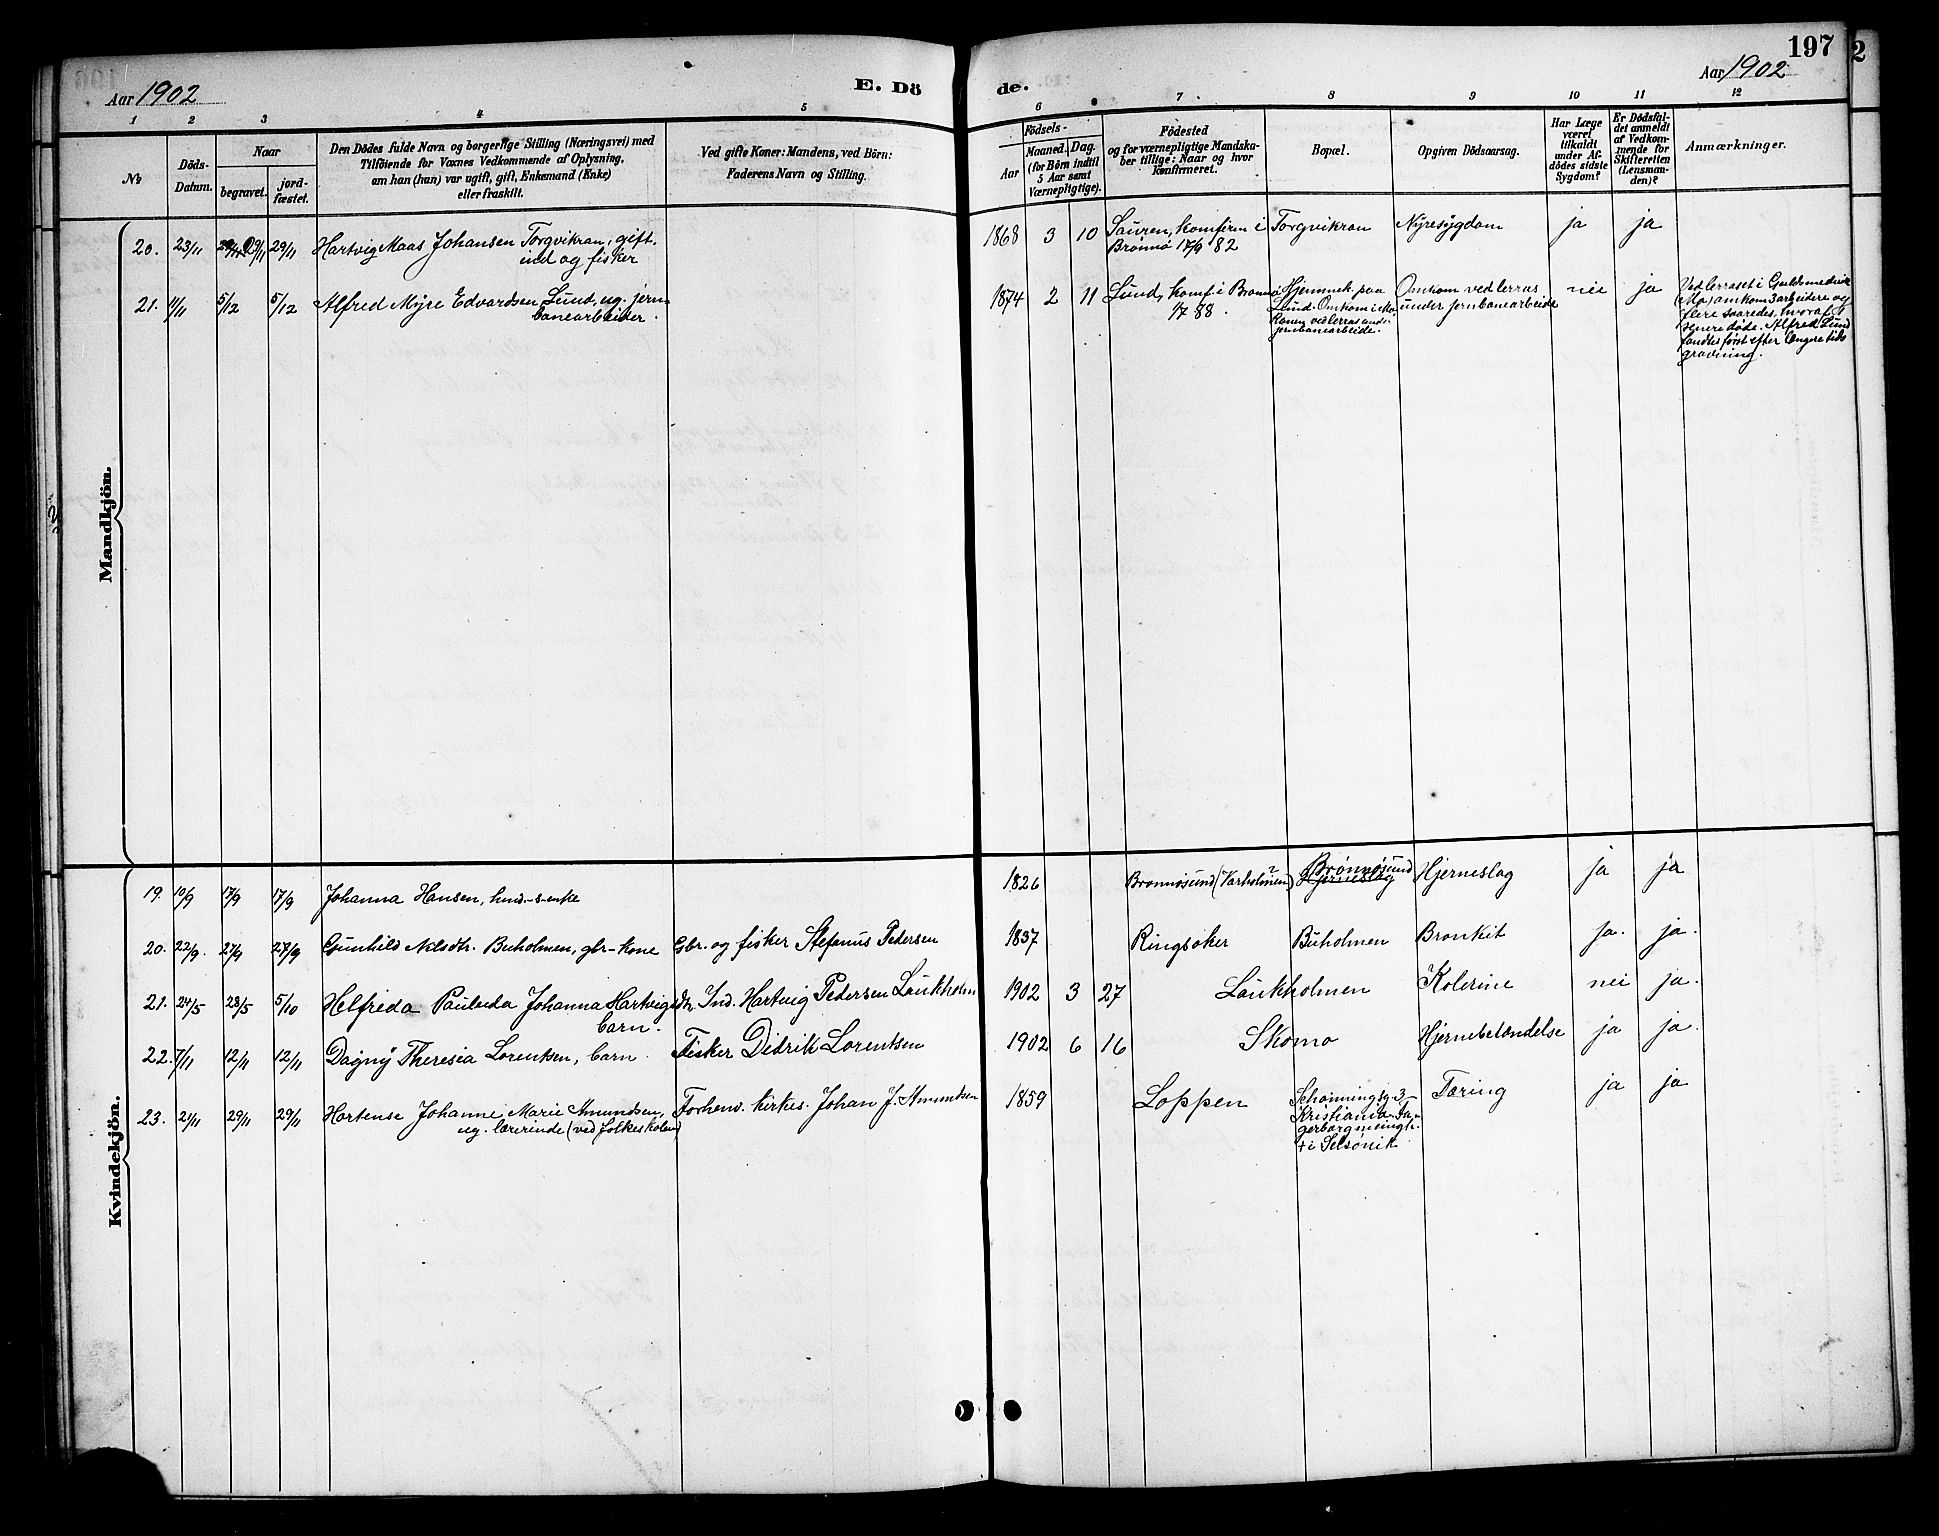 197
2
Aar 1902
E. Dö
de.
Aar 1902
1 2 3 4 5 6 7 8 9 10 11 12
№
Döds-
Datum.
Naar
begravet.
jord-
fæstet.
Den Dödes fulde Navn og borgerlige Stilling (Næringsvei) med
Tilföiende for Voxnes Vedkommende af Oplysning,
om han (hun) var ugift, gift, Enkemand (Enke)
eller fraskilt.
Ved gifte Koner: Mandens, ved Börn:
Faderens Navn og Stilling.
Födsels-
Aar
Maaned. Dag.
(for Börn indtil
5 Aar samt
Værnepligtige).
Födested
og for værnepligtige Mandska-
ber tillige: Naar og hvor
konfirmeret.
Bopæl.
Opgiven Dödsaarsag.
Har Læge
været
tilkaldt
under Af-
dödes sidste
Sygdom?
Er Dödsfal-
det anmeldt
af Vedkom-
mende for
Skifteretten
(Lensman-
den)?
Anmærkninger.
Mandkjön.
20. 23/11 29/11 29/11 Hartvig Maas Johansen Torgvikran, gift. 1868 3 10 Sauren, konfirm i Torgvikran Nyresygdom ja ja
ind og fisker Brønnø 17/9 82
21. 11/11 5/12 5/12 Alfred Myre Edvardsen Lund, ug. jern- 1874 2 11 Lund, konf. i Brønnø Hjemmeh. paa Omkom ved lerras nei ja Ved lerraset i Guldsmedvik
banearbeider. 1/7 88. Lund. Omkom i Mo under jernbanearbeide (Mo) omkom 3 arbeidere og
ved lerras under flere saaredes, hvoraf 1
jernbanearbeide. senere døde. Alfred Lund
fandtes først efter længere tids
gravning.
Kvindekjön.
19. 10/9 17/9 17/9 Johanna Hansen, husm-s-enke 1826 Brønnøsund (Karholmen)? Hjerneslag Brønnøsund Hjerneslag ja ja
20. 22/9. 27/9 27/9 Gunhild Nilsdtr. Buholmen, gbr-kone Gbr. og fisker Stefanus Pedersen 1837 Ringsaker Buholmen Bronkit ja. ja.
21. 24/5 28/5 5/10 Helfreda Pauleda Johanna Hartvigsdtr. Ind. Hartvig Pedersen Laukholm 1902 3 27 Laukholmen Kolerine nei ja.
barn.
22. 7/11 12/11 12/11 Dagny Theresia Lorentsen, barn. Fisker Didrik Lorentsen 1902 6 16 Skomo Hjernebetændelse ja ja.
23. 21/11 29/11 29/11 Hortense Johanne Marie Amundsen, Forhenv. kirkes. Johan J. Amundsen 1859 Loppen Schønningsg. 3- Tæring ja ja
ug. lærerinde (ved folkeskolen) Kristiania. Fa-
gerborg menigh.
† i Selsøvik